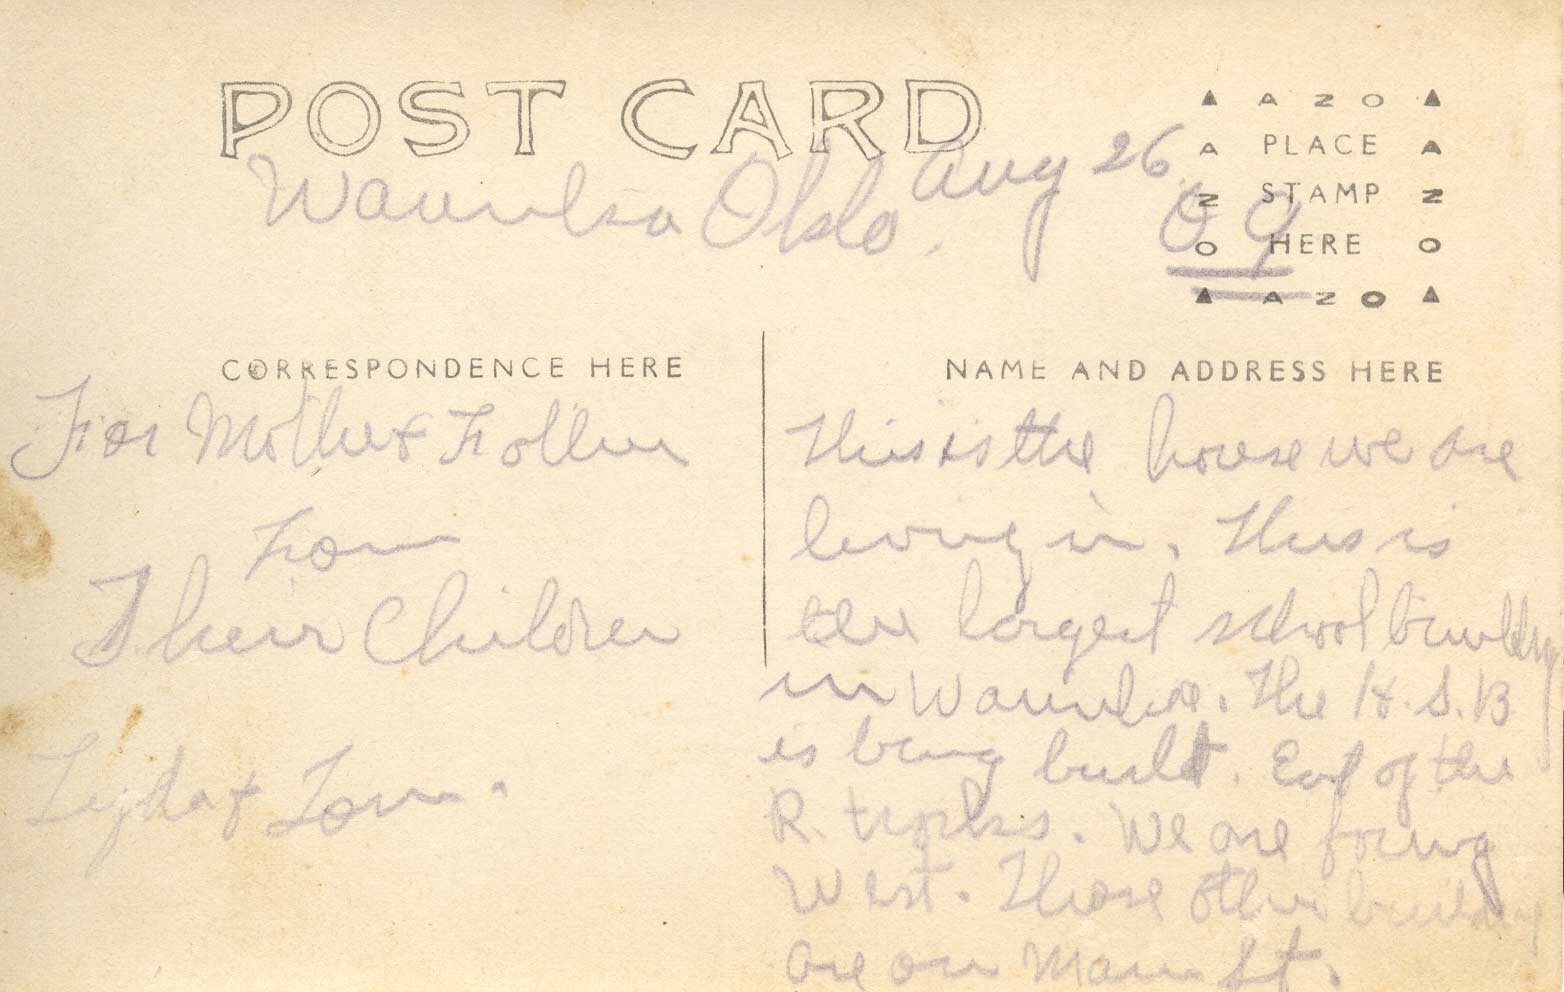 POST CARD
Waurika Okla. Aug 26.
09
▲ A Z O ▲
A PLACE A
Z STAMP Z
O HERE O
▲ A Z O ▲
CORRESPONDENCE HERE
For Mother & Father
from
Their Children
Lyda & Tom.
NAME AND ADDRESS HERE
This is the house we are
living in. This is
the largest school building
in Waurika. The H.S.B
is being built. East of the
R. tracks. We are facing
West. Those other buildings
are on Main St.